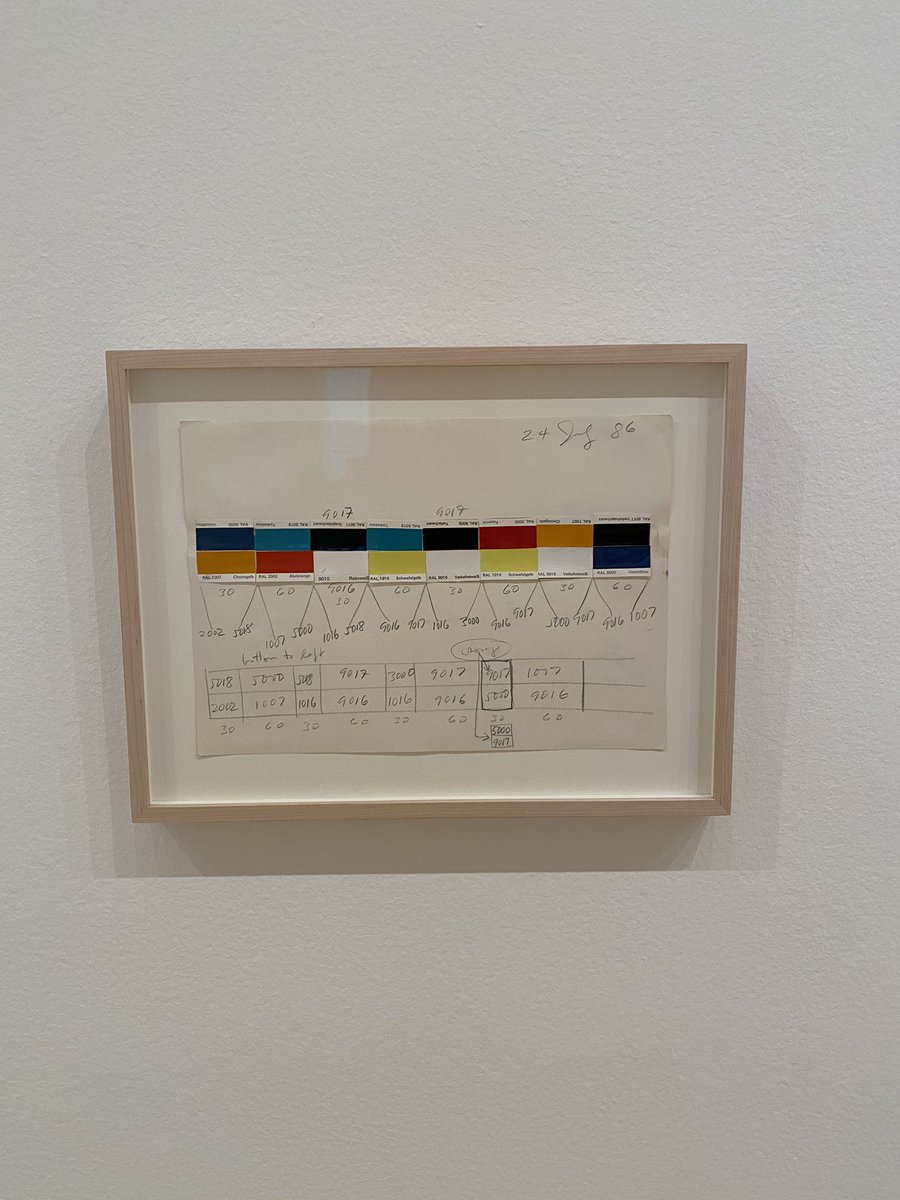 24 July 86
9017 9017
RAL 5000 RAL 5018 Türkisblau RAL 9011 Graphitschwarz RAL 5018 Türkisblau RAL 3000 Feuerrot RAL 1007 Chromgelb RAL 9017 Verkehrsschwarz
RAL 1007 Chromgelb RAL 2002 Blutorange 9010 Reinweiß RAL 1016 Schwefelgelb RAL 9016 Verkehrsweiß RAL 1016 Schwefelgelb RAL 9016 Verkehrsweiß RAL 5000 Violettblau
30 60 9016 60 30 60 30 60
30
2002 5018 1007 5000 1016 5018 9016 9017 1016 3000 9016 9017 5000 9017 9016 1007
button to left
5018 5000 5018 9017 3000 9017 9017 1007
2002 1007 1016 9016 1016 9016 5000 9016
30 60 30 60 30 60 30 60
5000
9017